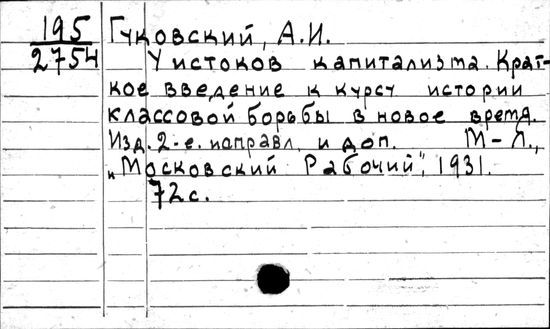 195 Гуковский, А.И.
2754 У истоков капитализма. Крат-
кое введение к курсу истории
классовой борьбы в новое время.
Изд. 2-е. исправл. и доп. М-Л.,
„Московский Рабочий", 1931.
72 с.